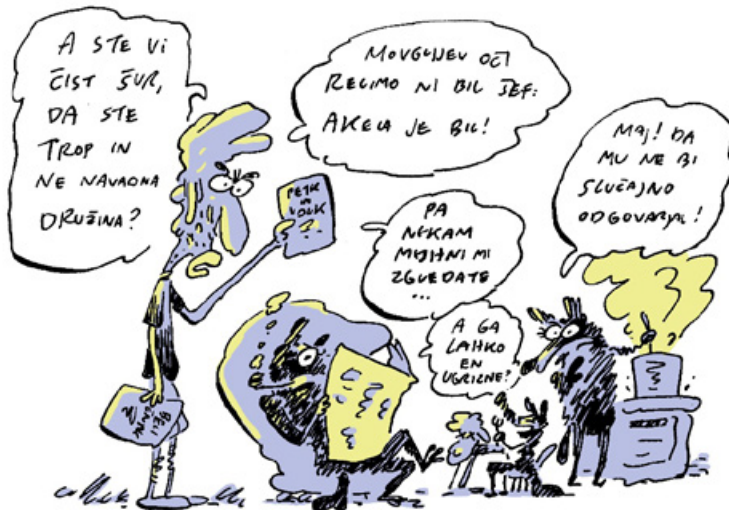 A STE VI
ČIST ŠUR,
DA STE
TROP IN
NE NAVADNA
DRUŽINA?
MOVGLIJEV OČI
RECIMO NI BIL ŠEF:
AKELA JE BIL!
PA
NEKAM
MEJHNI MI
ZGLEDATE
...
A GA
LAHKO
EN
UGRIZNE?
MEJ! DA
MU NE BI
SLUČAJNO
ODGOVARJAL!
PETER
IN
VOLK
BELI